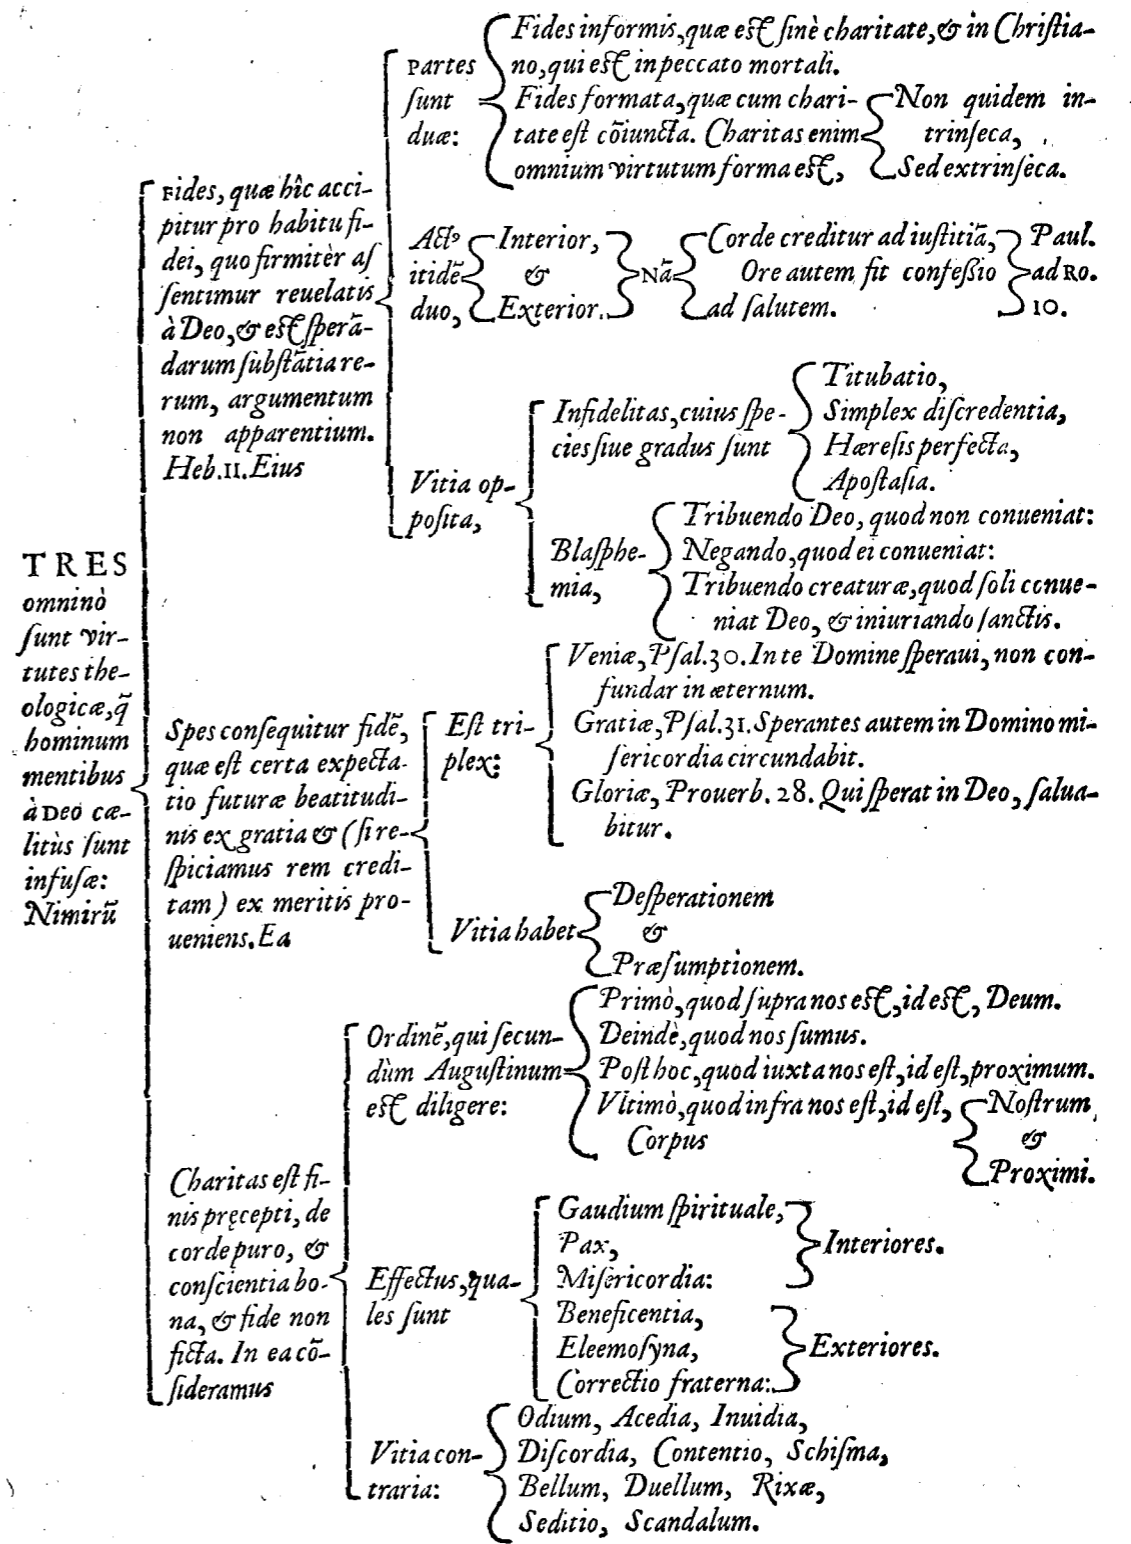 TRES
omninò
ſunt vir-
tutes the-
ologicæ, q̃
hominum
mentibus
à Deo cæ-
litùs ſunt
infuſæ:
Nimirũ
Fides, quæ hîc acci-
pitur pro habitu fi-
dei, quo firmitèr aſ
ſentimur reuelatis
à Deo, & est ſperã-
darum ſubſtãtia re-
rum, argumentum
non apparentium.
Heb. 11. Eius
Partes
ſunt
duæ:
Fides informis, quæ est ſinè charitate, & in Chriſtia-
no, qui est in peccato mortali.
Fides formata, quæ cum chari-
tate eſt cõiuncta. Charitas enim
omnium virtutum forma est,
Non quidem in-
trinſeca,
Sed extrinſeca.
Actꝰ
itidẽ
duo,
Interior,
&
Exterior.
Nã
Corde creditur ad iuſtitiã,
Ore autem fit confeſsio
ad ſalutem.
Paul.
ad Ro.
10.
Vitia op-
poſita,
Infidelitas, cuius ſpe-
cies ſiue gradus ſunt
Titubatio,
Simplex diſcredentia,
Hæreſis perfecta,
Apoſtaſia.
Blaſphe-
mia,
Tribuendo Deo, quod non conueniat:
Negando, quod ei conueniat:
Tribuendo creaturæ, quod ſoli conue-
niat Deo, & iniuriando ſanctis.
Spes conſequitur fidẽ,
quæ eſt certa expecta-
tio futuræ beatitudi-
nis ex gratia & (ſi re-
ſpiciamus rem credi-
tam) ex meritis pro-
ueniens. Ea
Eſt tri-
plex:
Veniæ, Pſal. 30. In te Domine ſperaui, non con-
fundar in æternum.
Gratiæ, Pſal. 31. Sperantes autem in Domino mi-
ſericordia circundabit.
Gloriæ, Prouerb. 28. Qui ſperat in Deo, ſalua-
bitur.
Vitia habet
Deſperationem
&
Præſumptionem.
Charitas eſt fi-
nis pręcepti, de
corde puro, &
conſcientia bo-
na, & fide non
ficta. In ea cõ-
ſideramus
Ordinẽ, qui ſecun-
dùm Auguſtinum
est diligere:
Primò, quod ſupra nos est, id est, Deum.
Deindè, quod nos ſumus.
Poſt hoc, quod iuxta nos eſt, id eſt, proximum.
Vltimò, quod infra nos eſt, id eſt,
Corpus
Noſtrum
&
Proximi.
Effectus, qua-
les ſunt
Gaudium ſpirituale,
Pax,
Miſericordia:
Interiores.
Beneficentia,
Eleemoſyna,
Correctio fraterna:
Exteriores.
Vitia con-
traria:
Odium, Acedia, Inuidia,
Diſcordia, Contentio, Schiſma,
Bellum, Duellum, Rixæ,
Seditio, Scandalum.